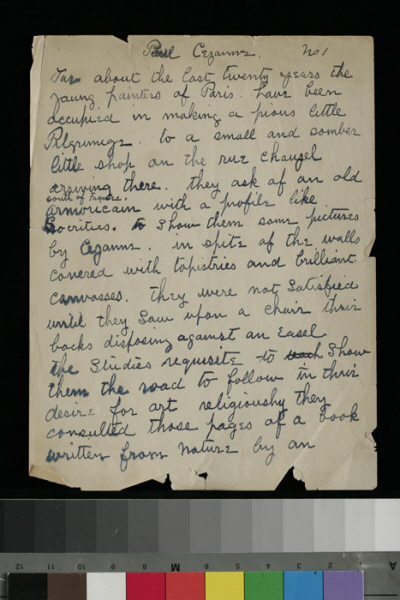 Paul Cezanne. No 1
For about the last twenty years the
young painters of Paris have been
occupied in making a pious little
Pilgrimage to a small and somber
little shop on the rue Clauzel
arriving there. they ask of an old
south of France.
armoricain with a profile like
Socrities. to show them some pictures
by Cezanne. in spite of the walls
covered with tapistries and brilliant
canvasses. they were not satisfied
until they saw upon a chair their
backs disposing against an Easel
the Studies requisite to show
them the road to follow in their
desire for art religiously they
consulted those pages of a book
written from nature by an
12 11 10 9 8 7 6 M 5 4 3 2 1